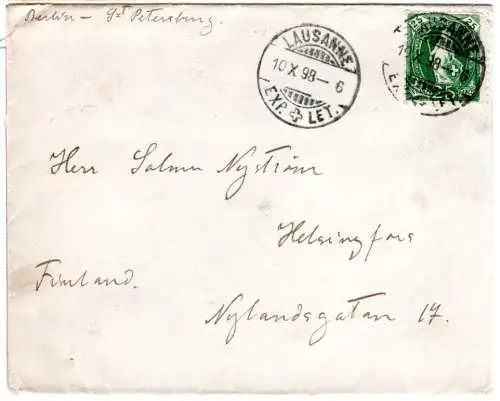 Berlin – St Petersburg.
LAUSANNE
10 X 98 – 6
EXP. LET.
25 25
LAUSANNE
98
Herr Salmn Nyström
Helsingfors
Finland.
Nylandsgatan 17.